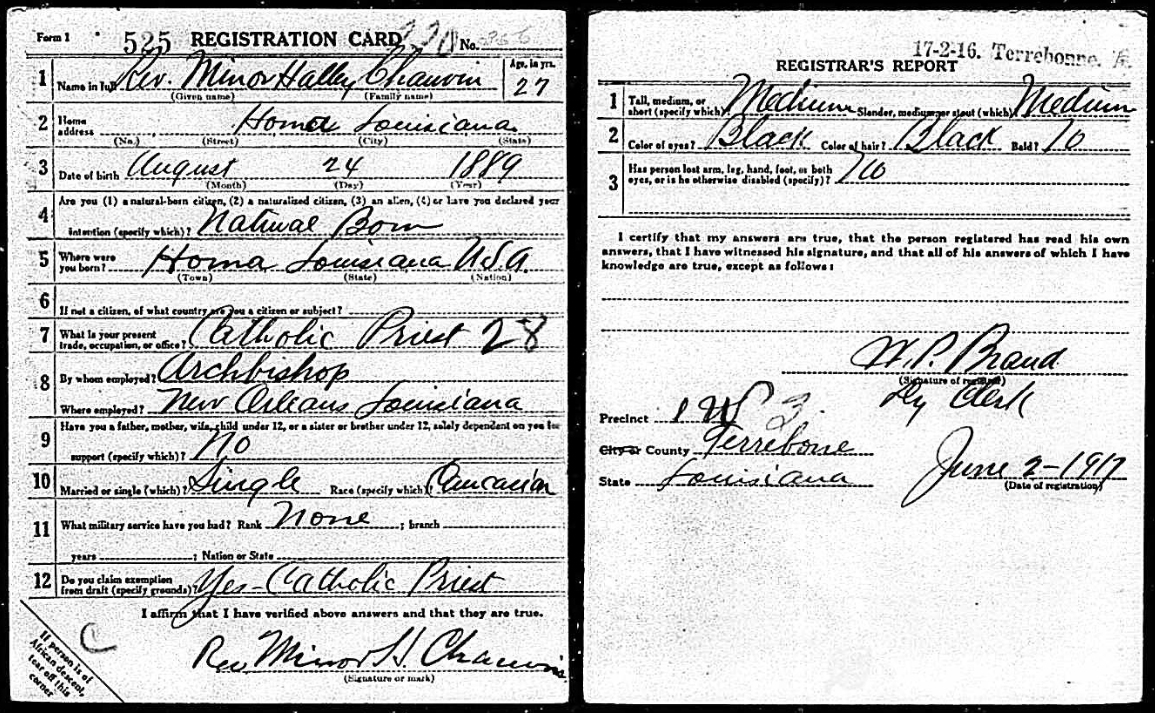 Form 1 525 REGISTRATION CARD No.
1 Name in full Rev. Minor Halley Chauvin Age, in yrs. 27
(Given name) (Family name)
2 Home address Homa Louisiana
(No.) (Street) (City) (State)
3 Date of birth August 24 1889
(Month) (Day) (Year)
4 Are you (1) a natural-born citizen, (2) a naturalized citizen, (3) an alien, (4) or have you declared your
intention (specify which)? Natural Born
5 Where were you born? Homa Louisiana U.S.A.
(Town) (State) (Nation)
6 If not a citizen, of what country are you a citizen or subject?
7 What is your present trade, occupation, or office? Catholic Priest 28
8 By whom employed? Archbishop
Where employed? New Orleans Louisiana
9 Have you a father, mother, wife, child under 12, or a sister or brother under 12, solely dependent on you for
support (specify which)? No
10 Married or single (which)? Single Race (specify which)? Caucasian
11 What military service have you had? Rank None ; branch
years ; Nation or State
12 Do you claim exemption from draft (specify grounds)? Yes - Catholic Priest
I affirm that I have verified above answers and that they are true.
C
Rev Minor H. Chauvin
(Signature or mark)
If person is of
African descent,
tear off this
corner
17-2-16. Terrebonne.
REGISTRAR'S REPORT
1 Tall, medium, or short (specify which)? Medium Slender, medium, or stout (which)? Medium
2 Color of eyes? Black Color of hair? Black Bald? No
3 Has person lost arm, leg, hand, foot, or both eyes, or is he otherwise disabled (specify)? No
I certify that my answers are true, that the person registered has read his own
answers, that I have witnessed his signature, and that all of his answers of which I have
knowledge are true, except as follows:
(Signature of registrar)
Dy Clerk
Precinct 1 W 3.
City or County Terrebone
State Louisiana
June 2-1917
(Date of registration)